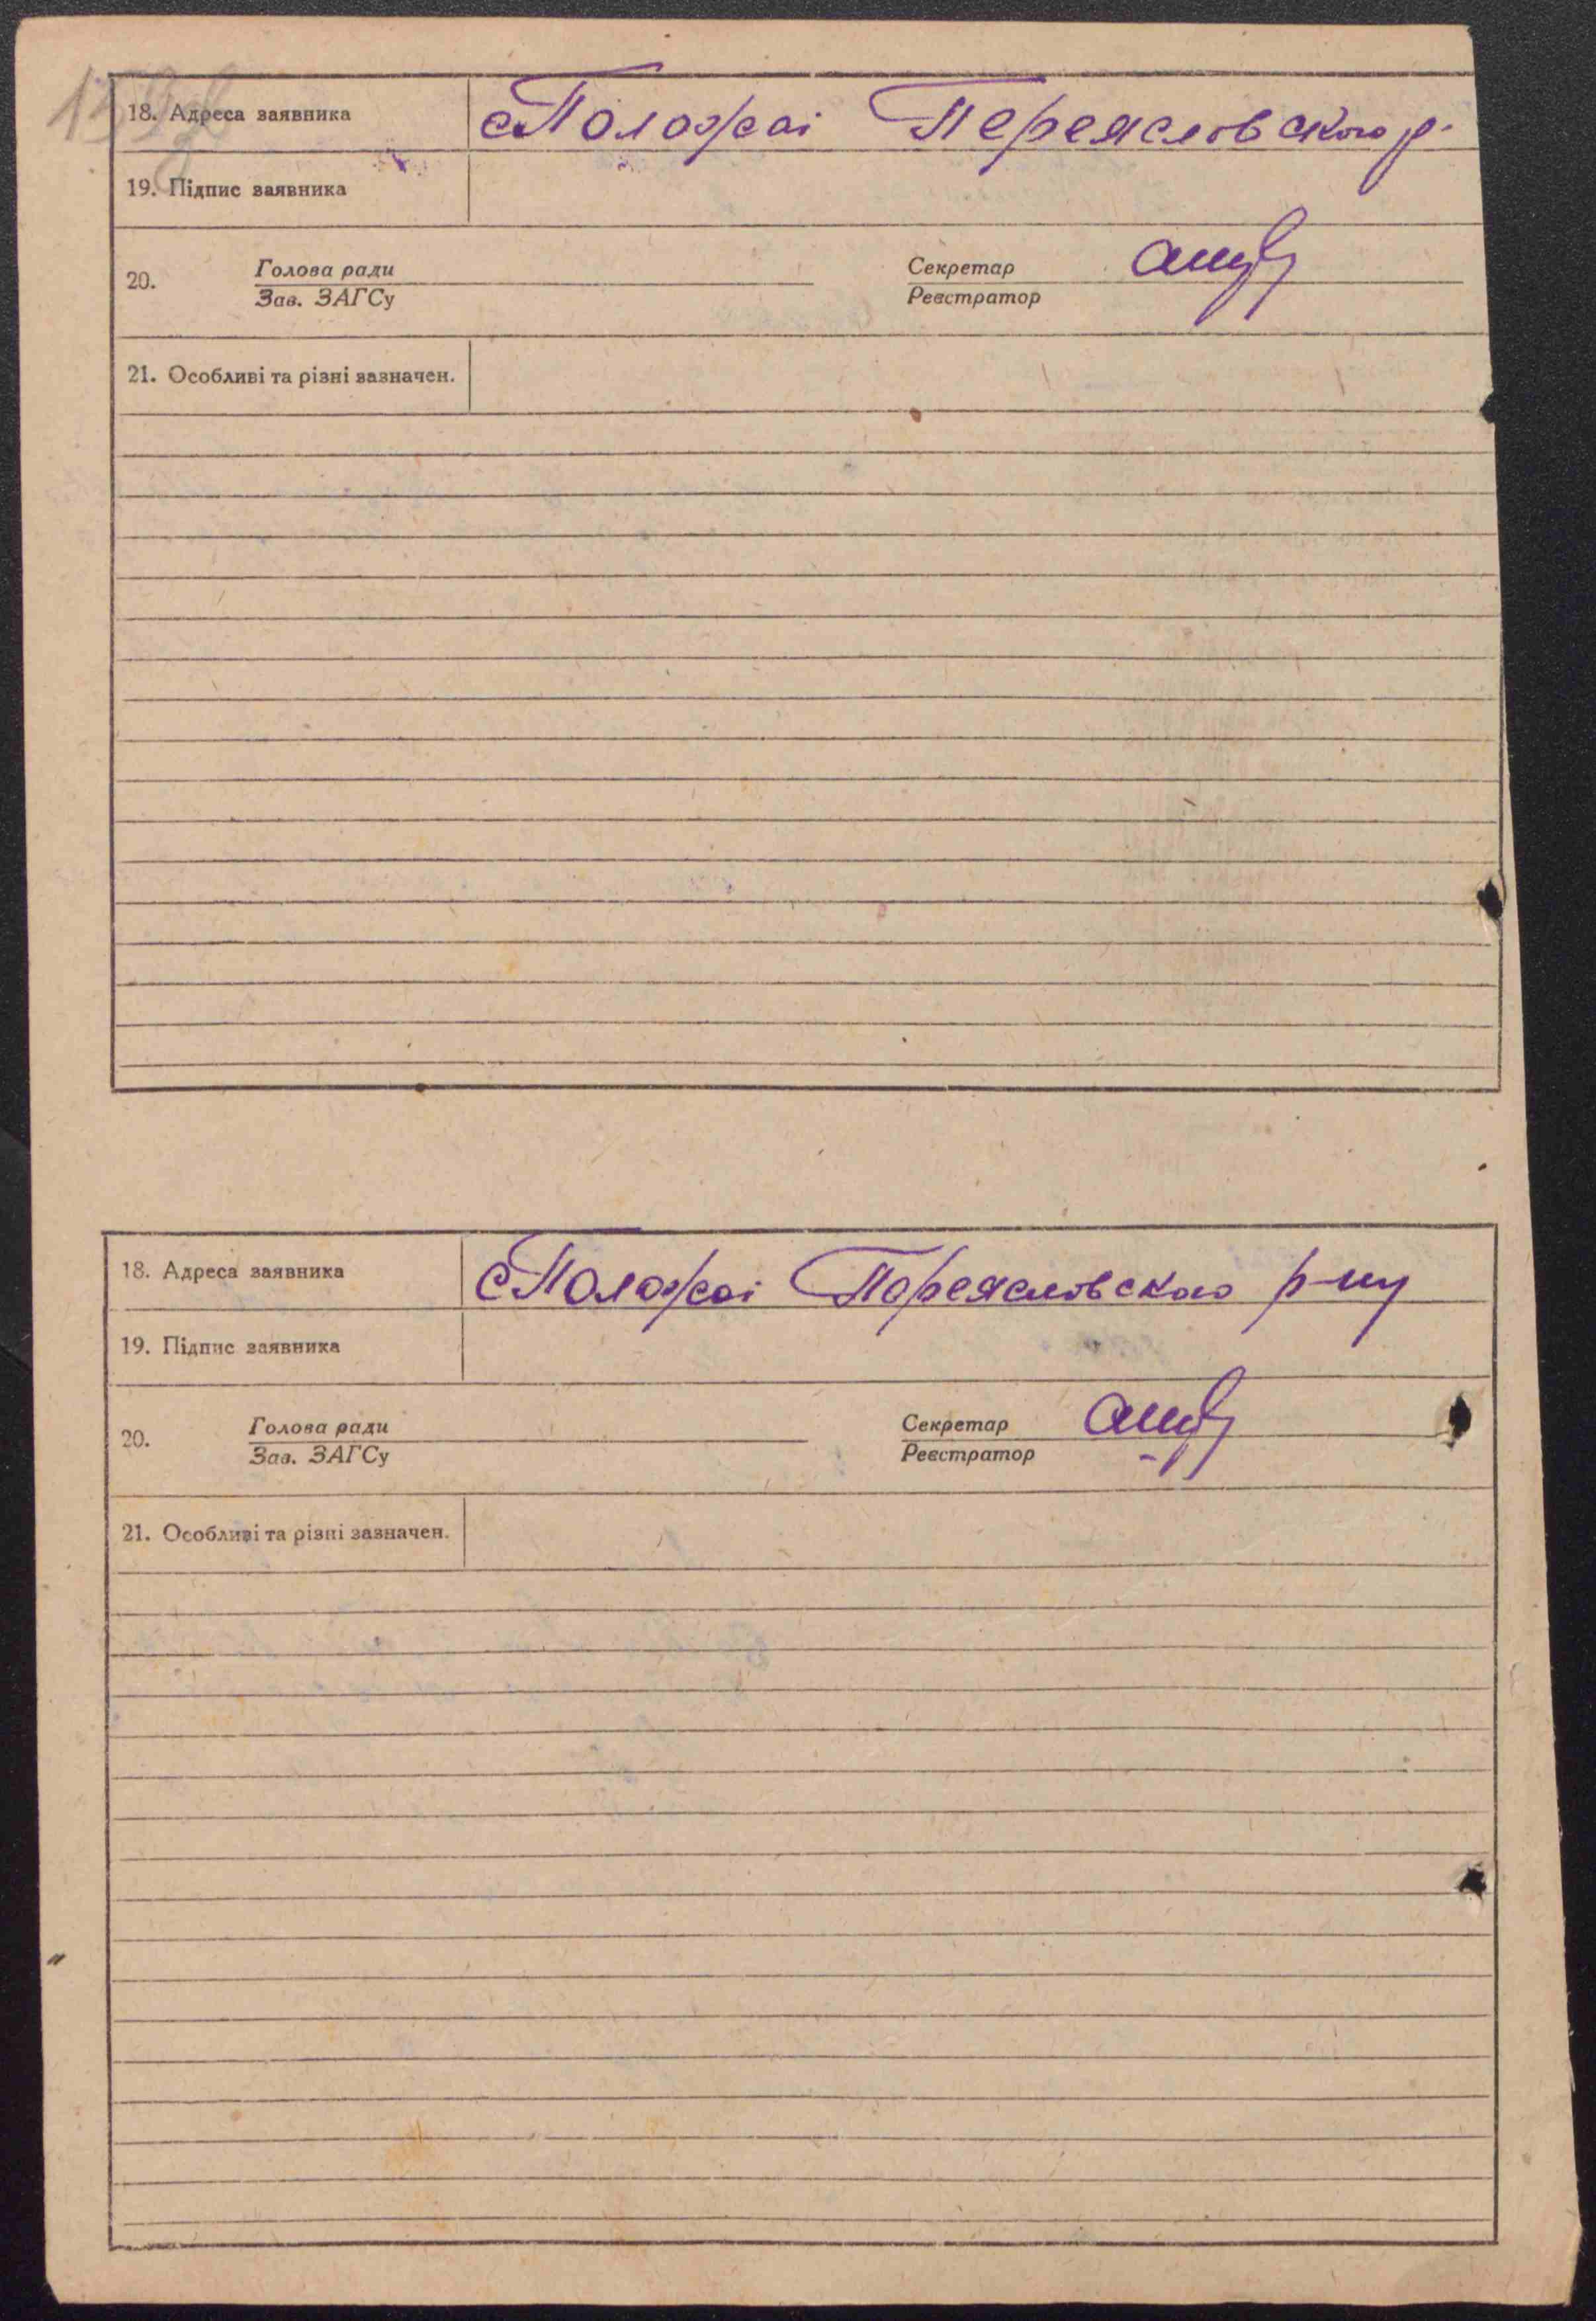 18. Адреса заявника с Положаі Переяславского р.
19. Підпис заявника
20. Голова ради Секретар
Зав. ЗАГСу Реєстратор
21. Особливі та різні зазначен.
18. Адреса заявника с Положаі Переяславского р-ну
19. Підпис заявника
20. Голова ради Секретар
Зав. ЗАГСу Реєстратор
21. Особливі та різні зазначен.